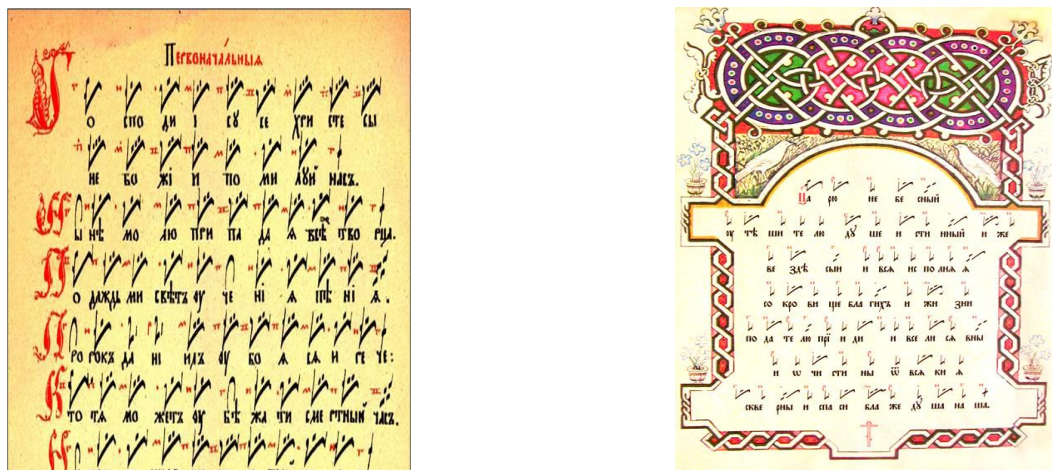 Первонача́льныѧ
Го спо ди І су се Хри сте Сы
не Бо жі и по ми луй насъ.
мо лю при па да ѧ
о даждь ми свѣтъ оу че ні ѧ пѣ ні ѧ .
Про рокъ да ні илъ оу бо ѧ сѧ и ре че:
Кто тѧ мо жетъ оу бѣ жа ти сме ртный часъ.
Ца рю не бе сный
оу тѣ ши те лю ду ше и сти нный и же
ве здѣ сый и всѧ ис по лнѧ ѧ
со кро ви ще бла гихъ и жи зни
по да те лю прї и ди и все ли сѧ вны
и ѡ чи сти ны ѿ всѧ кі ѧ
скве рны и спа си бла же ду ша на ша.